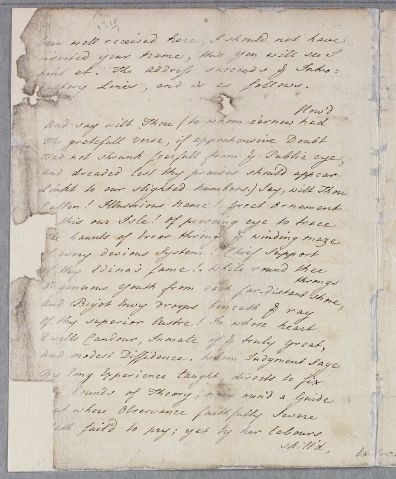 been well received here, I should not have
inserted your Name, tho' you will see I
hint at. The address succeeds y Intro:
:ductory Lines, and is as follows.
And say wilt Thou (to whom e'er now had flow'd
The gratefull verse, if apprehensive Doubt
Had not shrunk fearfull from y Publick eye,
And dreaded lest thy praises should appear
Doubt to our slighted numbers) Say, wilt Thou
Cullen! Illustrious Name! Great Ornament
this our Isle! Of piercing eye to trace
The haunts of Error through y winding maze
Of every devious System. Chief Support
Of thy Edina's fame! While round thee throngs
Ingenuous youth from each far-distant Shore,
And Bigot Envy droops beneath y ray
Of thy superior lustre! In whose heart
Dwells Candour, Inmate of y truly Great,
And modest Diffidence. Whom Judgment Sage
By long Experience taught, directs to fix
The bounds of Theory, own'd a Guide
where Observance faithfully severe
Hath fail'd to pry; yet by her labours
skill'd,